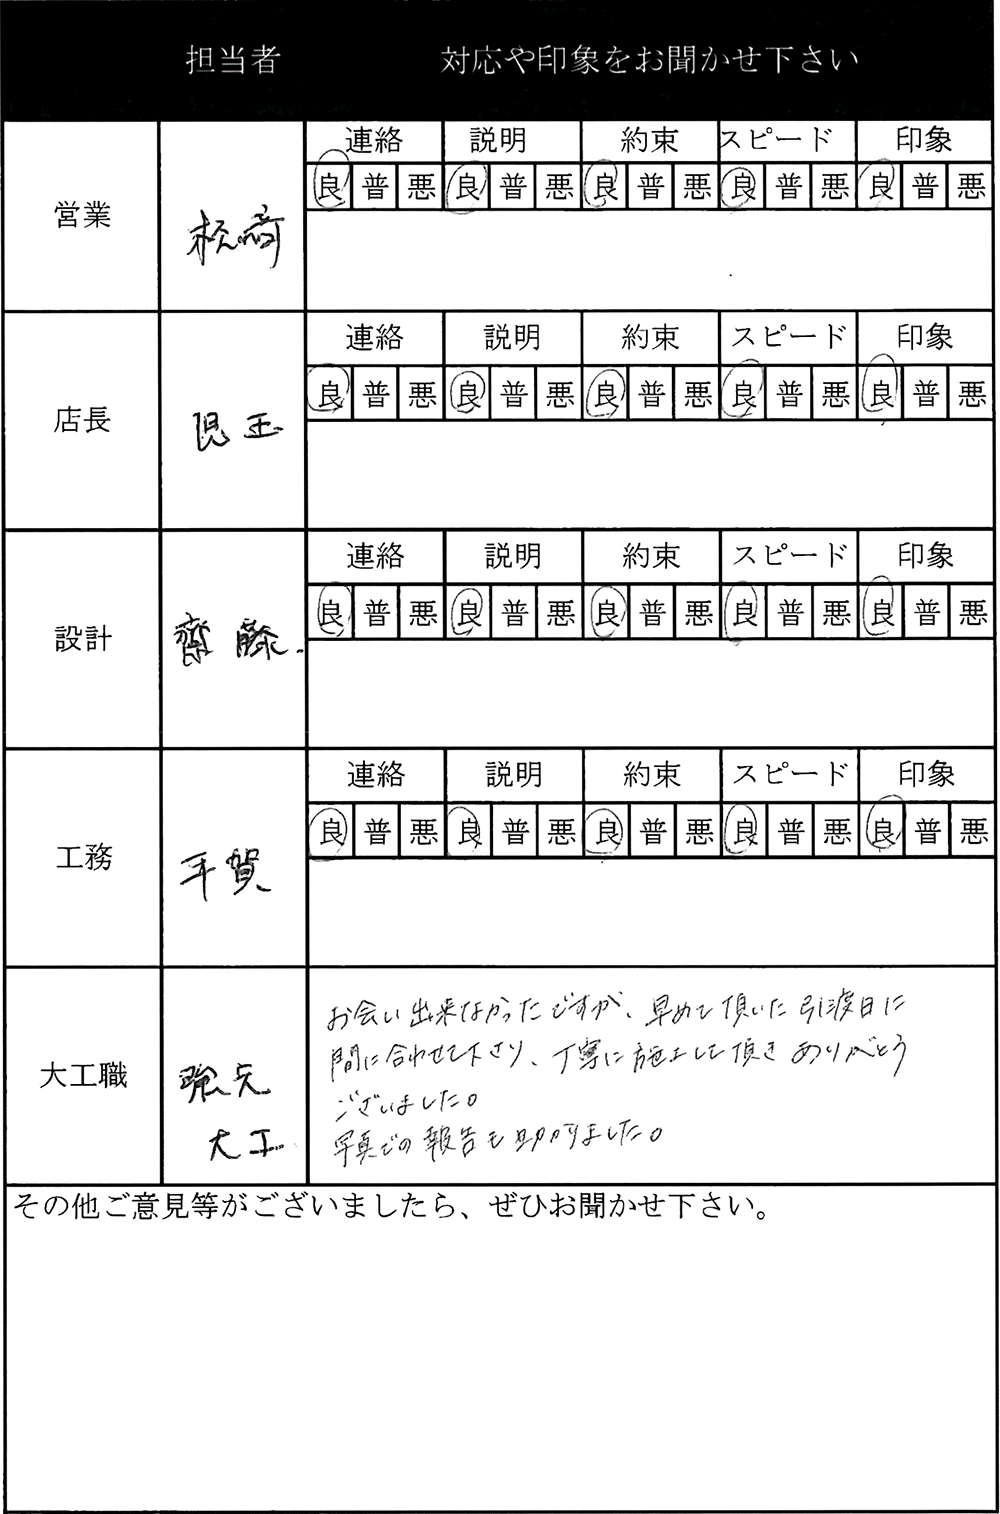 担当者 対応や印象をお聞かせ下さい
連絡 説明 約束 スピード 印象
良 普 悪 良 普 悪 良 普 悪 良 普 悪 良 普 悪
営業 松﨑
連絡 説明 約束 スピード 印象
良 普 悪 良 普 悪 良 普 悪 良 普 悪 良 普 悪
店長 児玉
連絡 説明 約束 スピード 印象
良 普 悪 良 普 悪 良 普 悪 良 普 悪 良 普 悪
設計 齋藤
連絡 説明 約束 スピード 印象
良 普 悪 良 普 悪 良 普 悪 良 普 悪 良 普 悪
工務 平賀
お会い出来なかったですが、早めて頂いた引渡日に
間に合わせて下さり、丁寧に施工して頂きありがとう
ございました。
写真での報告も助かりました。
大工職
大工
その他ご意見等がございましたら、ぜひお聞かせ下さい。